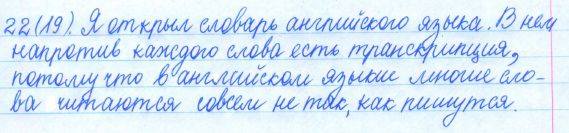 22(19). Я открыл словарь английского языка. В нем
напротив каждого слова есть транскрипция,
потому что в английском языке многие сло-
ва читаются совсем не так, как пишутся.